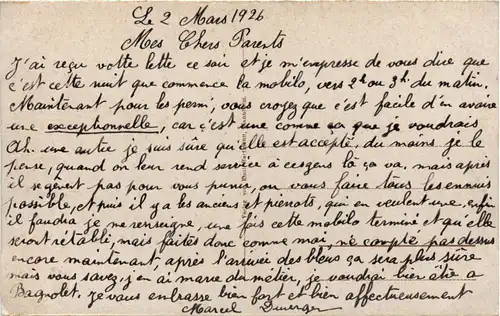 Le 2 Mars 1926
Mes Chers Parents
J'ai reçu votte lette ce soir et je m'empresse de vous dire que
c'est cette nuit que commence la mobilo, vers 2h ou 3h du matin.
Maintenant pour les permi, vous croyez que c'est facile d'en avoire
une exceptionnelle, car c'est une comme ça que je voudrais
Ah. une autre je suis sûre qu'elle est accépté, du moins je le
pense, quand on leur rend service à ces gens là ça va, mais après
il se gênent pas pour vous punir, ou vous faire tous les ennuis
possible, et puis il y a les anciens et pierrots, qui en veulent une, enfin
il faudra je me renseigne, une fois cette mobilo terminé et qu'elle
seront rétabli, mais faites donc comme moi, ne compté pas dessus
encore maintenant, après l'arrivée des bleus ça sera plus sûre
mais vous savez, j'en ai marre du métier, je voudrai bien être a
Bagnolet. je vous enbrasse bien fort et bien affectueusement
Marcel